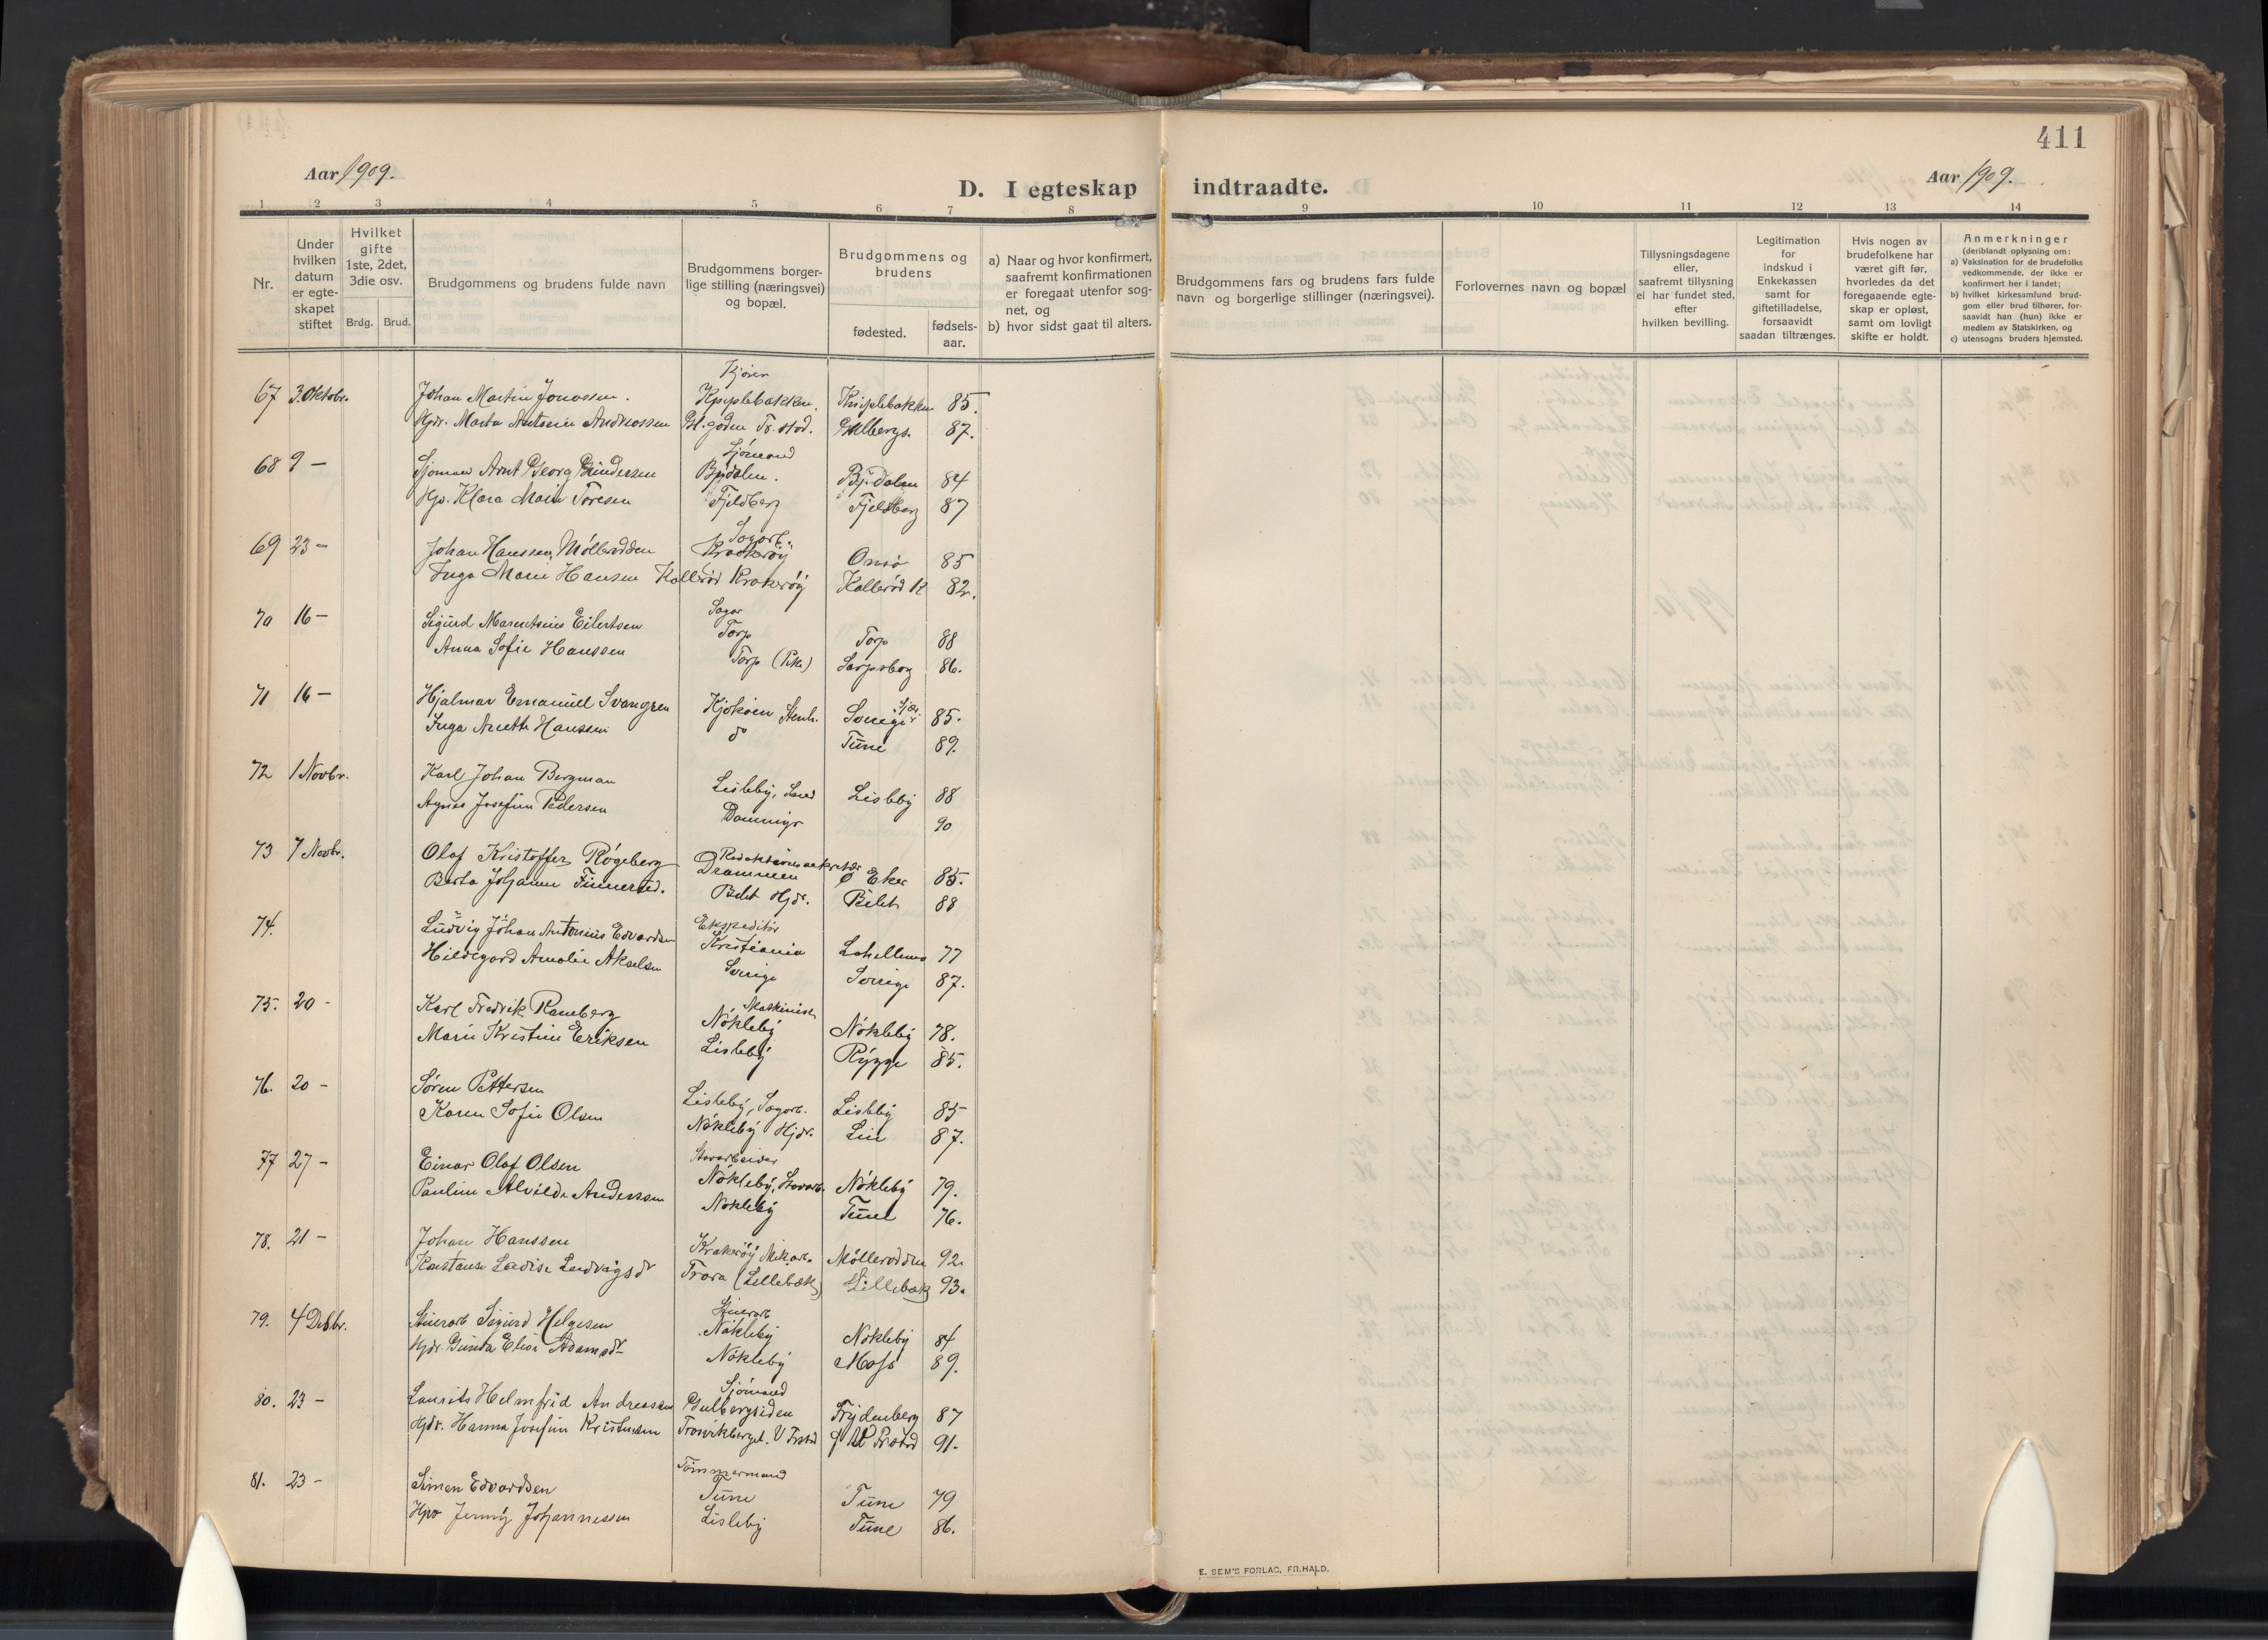 411
Aar 1909.
D. I egteskap indtraadte.
Aar 1909.
1 2 3 4 5 6 7 8 9 10 11 12 13 14
Nr.
Under hvilken datum er egteskapet stiftet
Hvilket gifte 1ste, 2det, 3die osv.
Brdg. Brud.
Brudgommens og brudens fulde navn
Brudgommens borgerlige stilling (næringsvei) og bopæl.
Brudgommens og brudens
fødested.
fødselsaar.
a) Naar og hvor konfirmert, saafremt konfirmationen er foregaat utenfor sognet, og
b) hvor sidst gaat til alters.
Brudgommens fars og brudens fars fulde navn og borgerlige stillinger (næringsvei).
Forlovernes navn og bopæl
Tillysningsdagene eller, saafremt tillysning ei har fundet sted, efter hvilken bevilling.
Legitimation for indskud i Enkekassen samt for giftetilladelse, forsaavidt saadan tiltrænges.
Hvis nogen av brudefolkene har været gift før, hvorledes da det foregaaende egteskap er opløst, samt om lovligt skifte er holdt.
Anmerkninger
(deriblandt oplysning om:
a) Vaksination for de brudefolks vedkommende, der ikke er konfirmert her i landet;
b) hvilket kirkesamfund brudgom eller brud tilhører, forsaavidt han (hun) ikke er medlem av Statskirken, og
c) utensogns bruders hjemsted.
67 3. Oktobr. Johan Martin Jonassen. 85.
87.
68 9 — Sjømand Arnt Georg Gundersen Sjømand Bydalen. Bydalen 84
Klara Marie Toresen Fjeldberg Fjeldberg 87
69 23 — Johan Hanssen, Møllerodden Krokerøy Onsø 85
Inga Marie Hansen Kallerød Krokerøy Kallerød K 82.
70 16 — Sigurd Marentsius Eilertsen Torp Torp 88
Anna Sofie Hanssen Torp Sarpsborg 86.
71 16 — Hjalmar Emanuel Svangren Kjøkøen Stenh. Sverige 85.
Inga Anette Hanssen do Tune 89.
72 1 Novbr. Karl Johan Bergman Lisleby, Lisleby 88
Agnes Josefine Pedersen 90
73 7 Novbr. Olaf Kristoffer Røgeberg Redaktionssekretær Drammen Ø Eker 85.
Berta Johanne Hjdr. 88
74. Ludvig Johan Antonius Edvardsen Ekspeditør Kristiania 77
Hildegard Amalie Akselsen Sverige Sverige 87.
75. 20 - Karl Fredrik Ramberg Maskinist Nøkleby Nøkleby 78.
Marie Kristine Eriksen Lisleby Rygge 85.
76. 20 - Søren Pettersen Lisleby, Sagarb. Lisleby 85
Karen Sofie Olsen Nøkleby Hjdr. Lie 87.
77 27 - Einar Olaf Olsen Nøkleby, Nøkleby 79.
Pauline Alvilde Anderssen Nøkleby Tune 76.
78. 21 - Johan Hanssen Krokerøy Mek. arb. Mølleroddern 92.
Konstanse Lovise Ludvigsdr Trara (Lillebæk) Lillebæk 93.
79. 4 Desbr. Sigurd Helgesen Nøkleby Nøkleby 84
Hjdr. Gunda Elise Adamsdr Nøkleby Moss 89.
80. 23 - Laurits Helmfrid Andreassen Sjømand Gulbergsiden Frydenberg 87
Hjdr. Hanna Josefine Kristensen Trosvikberget. V Frstad 91.
81. 23 - Simen Edvardsen Tømmermand Tune Tune 79
Jenny Johannessen Lisleby Tune 86.
E. SEM'S FORLAG, FR.HALD.